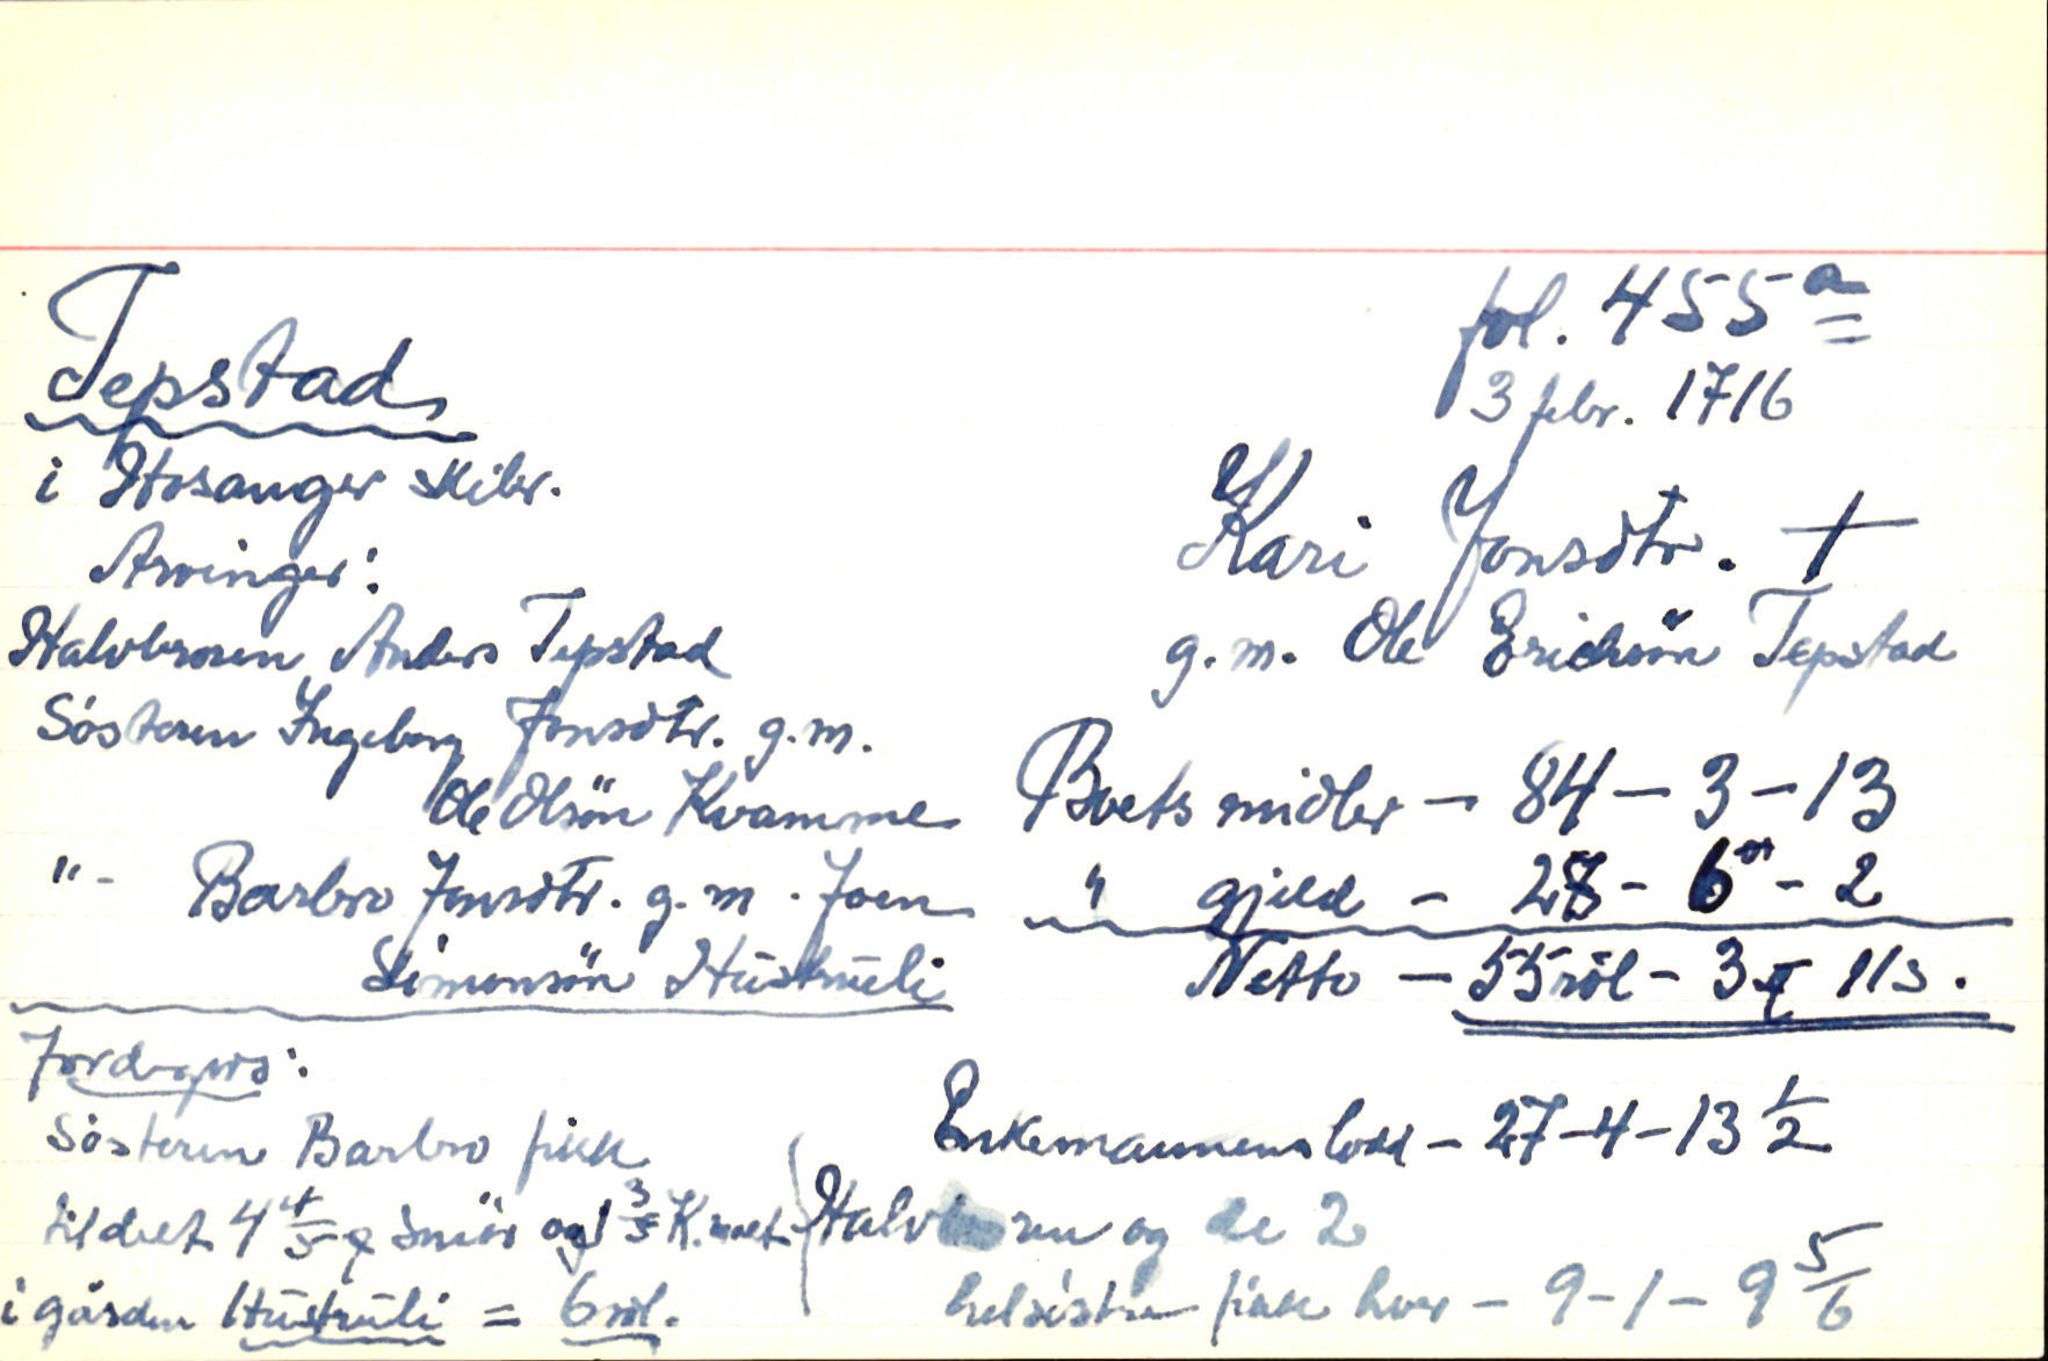 Tepstad
i Hosanger skibr.
Arvinger:
Halvbroren Anders Tepstad
Søsteren Ingeborg Jonsdtr. g.m.
Ole Olsön Kvamme
" - Barbro Jonsdtr. g.m. Joen
Simonsön Hüstrüli
Jordegods:
Søsteren Barbro fikk
tildelt 4 4/5 smör og 1 3/5 K. malt
i gården Hüstrüli = 6 rdl.
fol. 455 a
3 febr. 1716
Kari Jonsdtr. †
g.m. Ole Erichsön Tepstad
Boets midler - 84 - 3 - 13
" gjeld - 28 - 6 - 2
Netto - 55 rdl - 3 11 s.
Enkemannens lodd - 27 - 4 - 13 1/2
Halvbroren og de 2
helsøstre fikk hver - 9 - 1 - 9 5/6